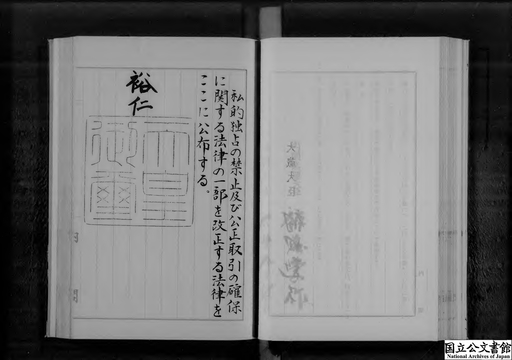 私的独占の禁止及び公正取引の確保
に関する法律の一部を改正する法律を
ここに公布する。
裕仁
天皇
御璽
国立公文書館
National Archives of Japan